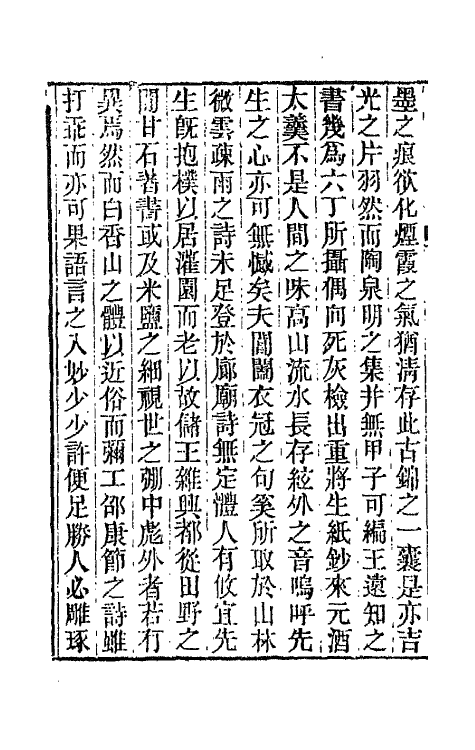 墨之痕欲化煙霞之氣猶淸存此古錦之一囊是亦吉
光之片羽然而陶泉明之集并無甲子可編王遠知之
書幾爲六丁所攝偶向死灰檢出重將生紙鈔來元酒
太羹不是人間之味高山流水長存絃外之音嗚呼先
生之心亦可無憾矣夫閶闔衣冠之句奚所取於山林
微雲疎雨之詩未足登於廊廟詩無定體人有攸宜先
生旣抱樸以居灌園而老以故儲王雜興都從田野之
間甘石著書或及米鹽之細視世之弸中彪外者若有
異焉然而白香山之體以近俗而彌工邵康節之詩雖
打乖而亦可果語言之入妙少少許便足勝人必雕琢